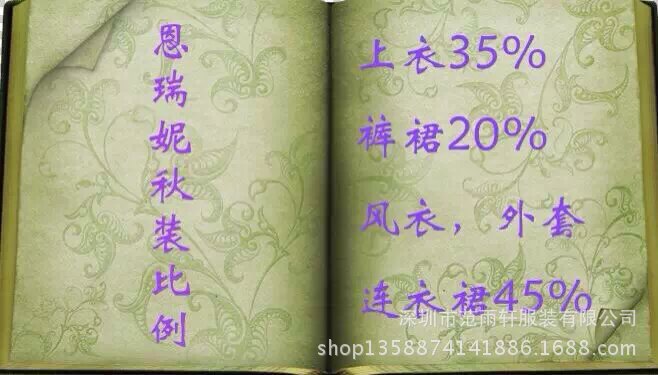 恩瑞妮秋装比例
上衣35%
裤裙20%
风衣，外套
连衣裙45%
深圳市范雨轩服装有限公司
shop1358874141886.1688.com